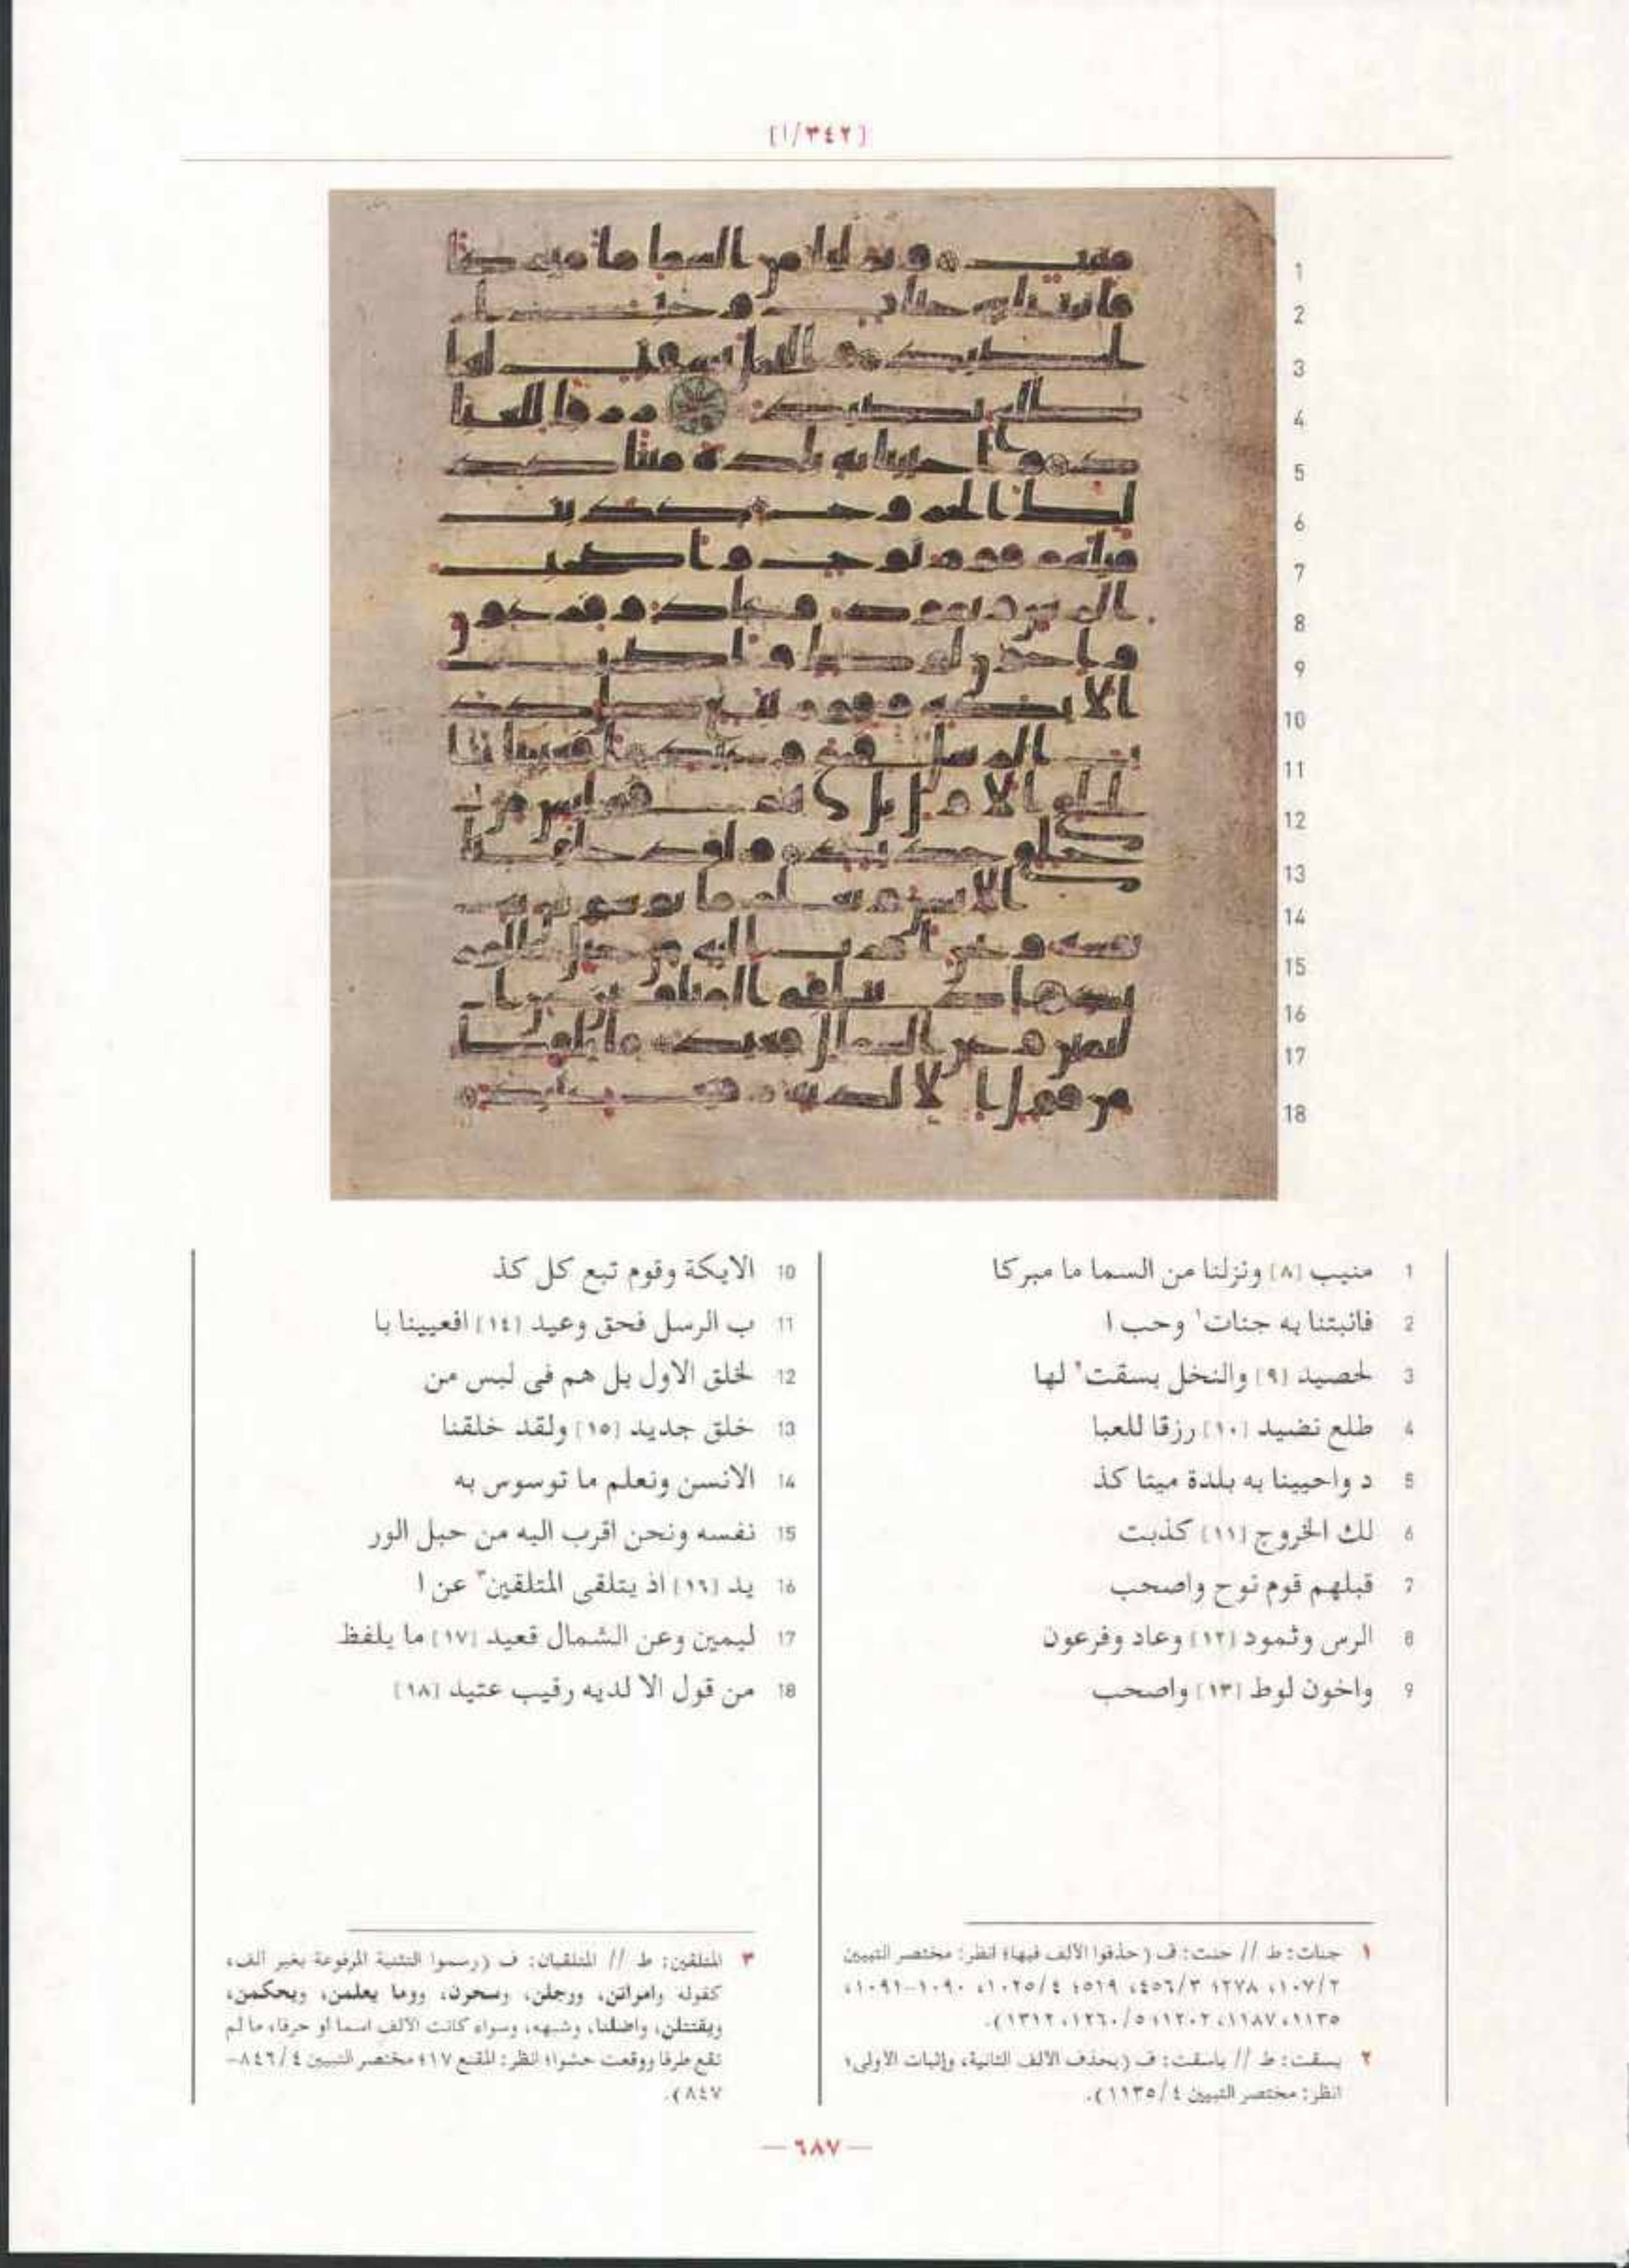 [٣٤٢/ا]
1 منيب [٨] ونزلنا من السما ما مبركا
2 فانبتنا به جنات١ وحب ا
3 لحصيد [٩] والنخل بسقت٢ لها
4 طلع نضيد [١٠] رزقا للعبا
5 د واحيينا به بلدة ميتا كذ
6 لك الخروج [١١] كذبت
7 قبلهم قوم نوح واصحب
8 الرس وثمود [١٢] وعاد وفرعون
9 واخون لوط [١٣] واصحب
10 الايكة وقوم تبع كل كذ
11 ب الرسل فحق وعيد [١٤] افعيينا با
12 لخلق الاول بل هم فى لبس من
13 خلق جديد [١٥] ولقد خلقنا
14 الانسن ونعلم ما توسوس به
15 نفسه ونحن اقرب اليه من حبل الور
16 يد [١٦] اذ يتلقى المتلقين٣ عن ا
17 ليمين وعن الشمال قعيد [١٧] ما يلفظ
18 من قول الا لديه رقيب عتيد [١٨]
١ جنات: ط // جنت: ف (حذفوا الألف فيها؛ انظر: مختصر التبيين
٢/١٠٧، ٢٧٨؛ ٣/٤٥٦، ٥١٩؛ ٤/١٠٢٥، ١٠٩٠-١٠٩١،
١١٣٥، ١١٨٧، ١٢٠٢؛ ٥/١٢٦٠، ١٣١٢).
٢ بسقت: ط // باسقت: ف (بحذف الألف الثانية، وإثبات الأولى؛
انظر: مختصر التبيين ٤/١١٣٥).
٣ المتلقين: ط // المتلقيان: ف (رسموا التثنية المرفوعة بغير ألف،
كقوله وامراتن، ورجلن، وسحرن، ووما يعلمن، ويحكمن،
ويقتتلن، واضلنا، وشبهه، وسواء كانت الألف اسما أو حرفا، ما لم
تقع طرفا ووقعت حشوا؛ انظر: المقنع ١٧؛ مختصر التبيين ٤/٨٤٦-
٨٤٧).
— ٦٨٧ —